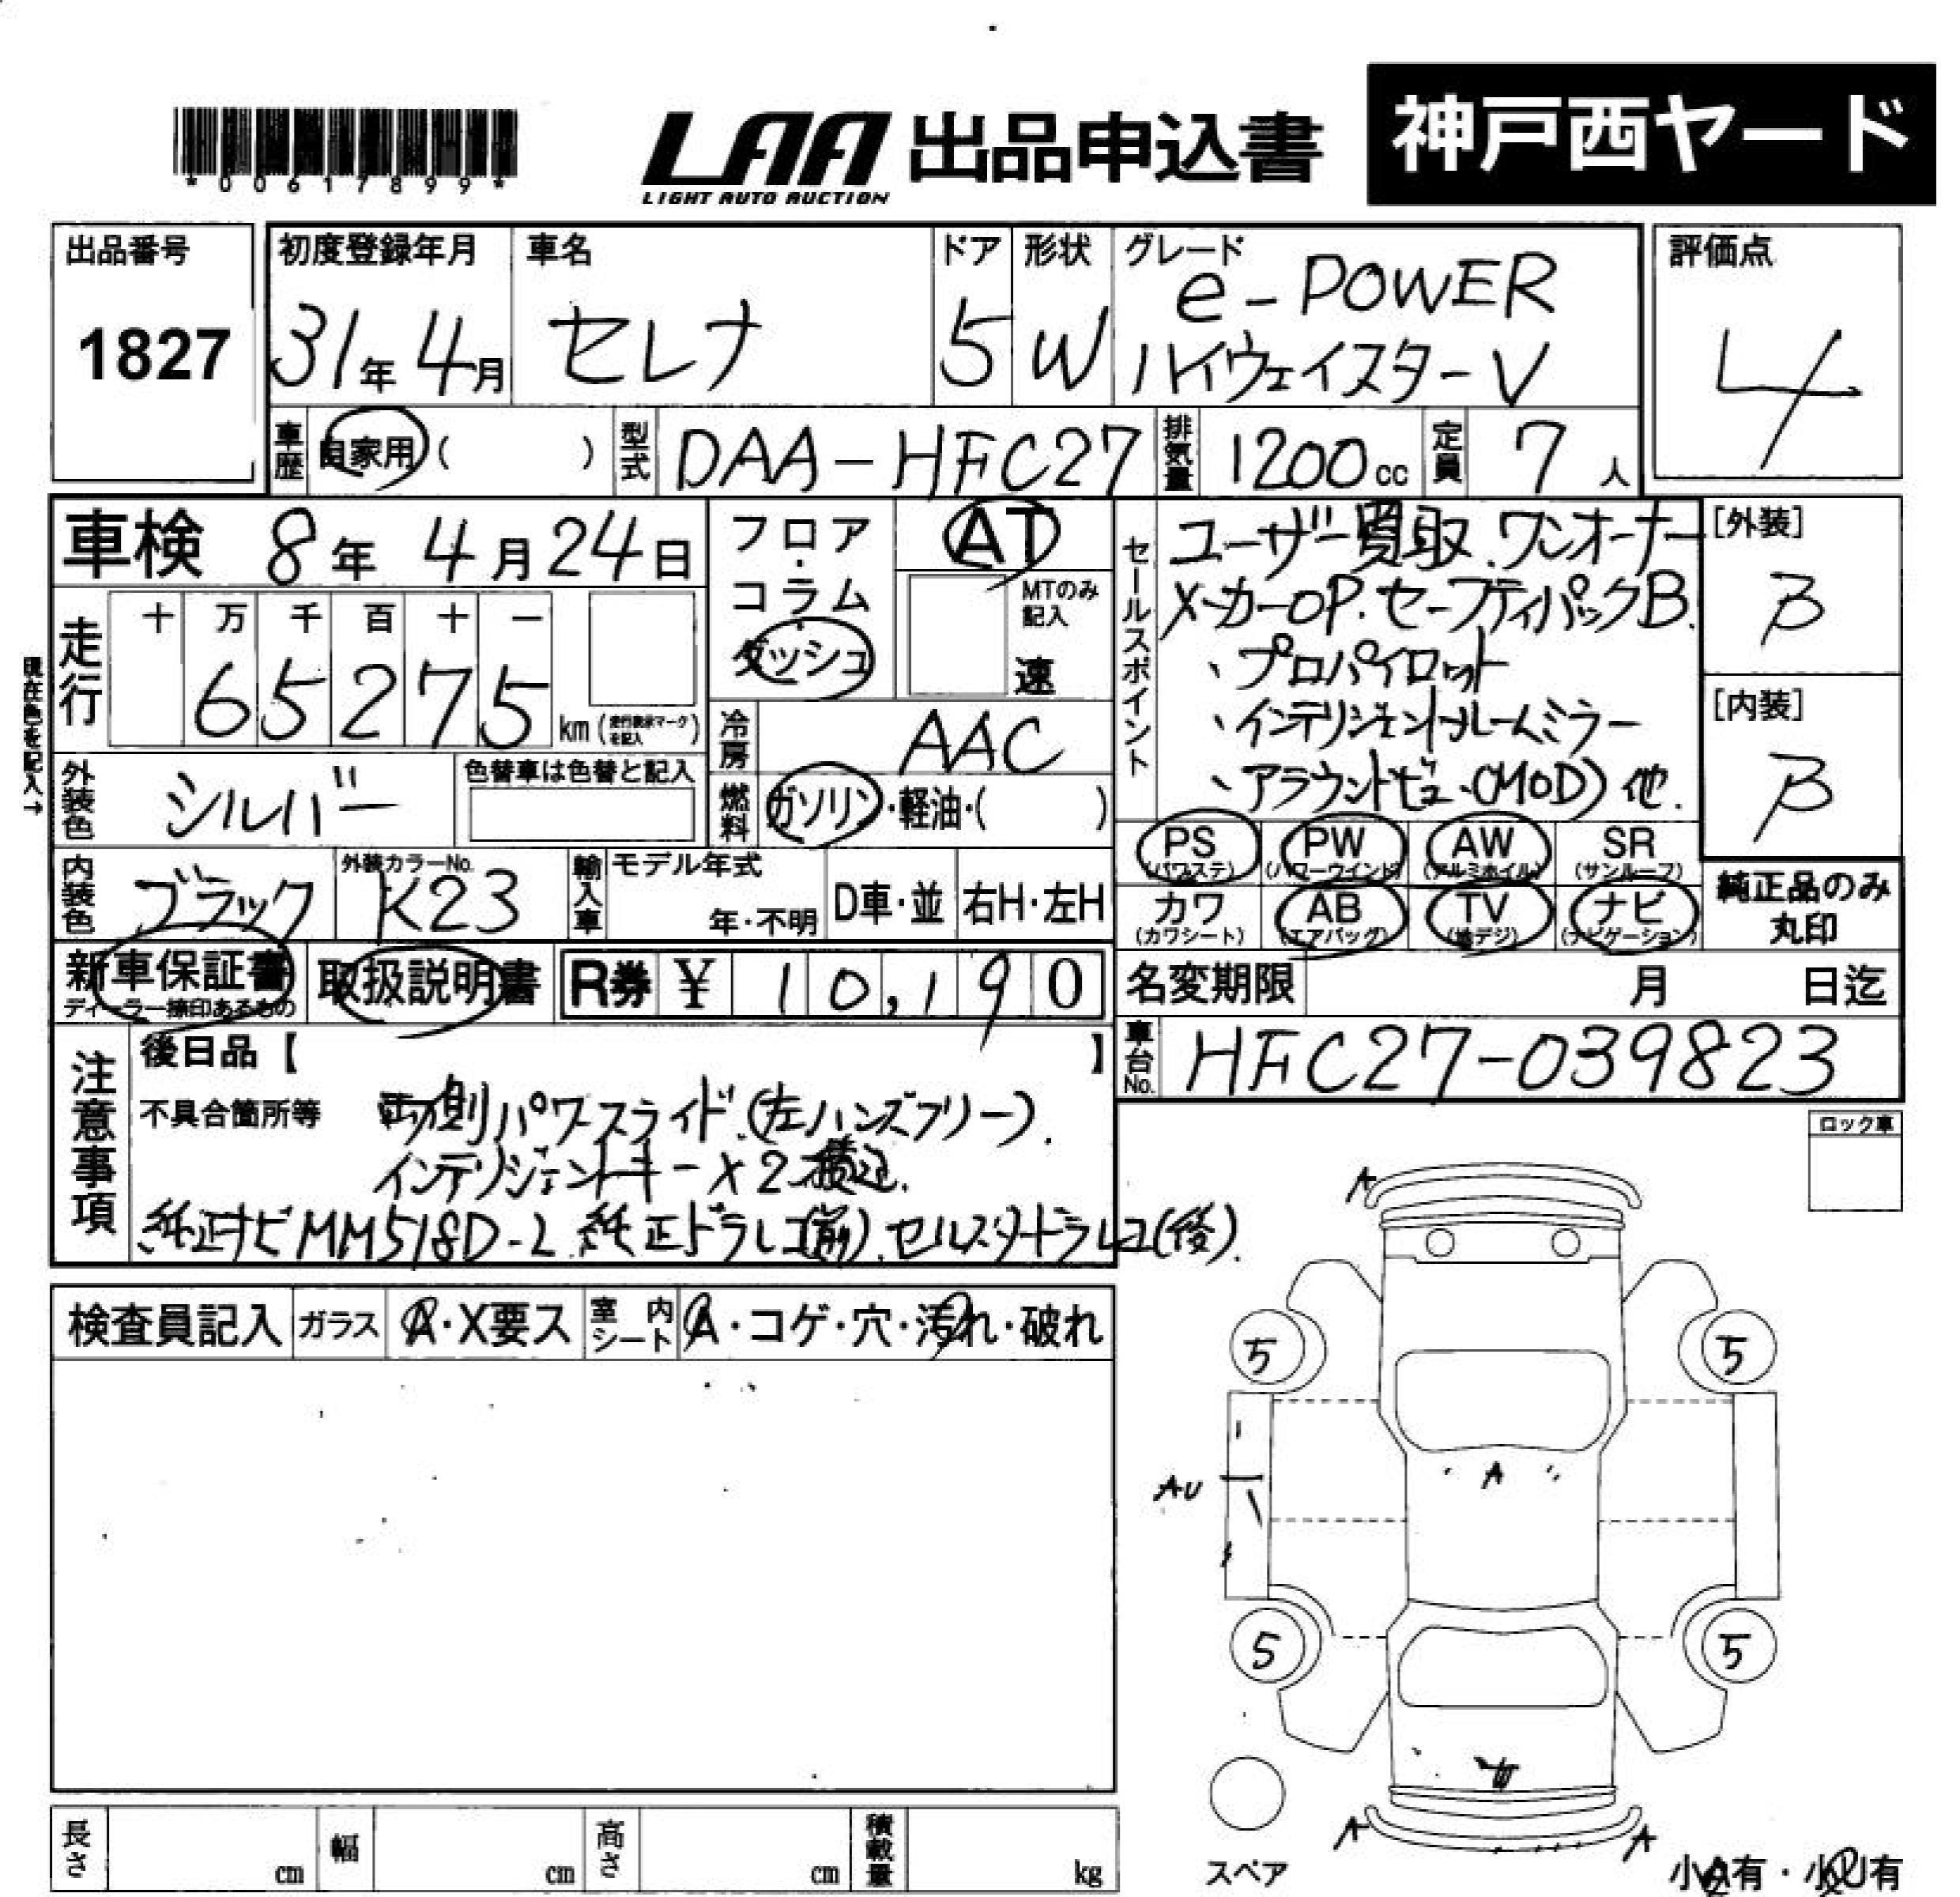 *00617899*
LAA 出品申込書
LIGHT AUTO AUCTION
神戸西ヤード
出品番号
1827
初度登録年月
31年4月
車名
セレナ
ドア
5
形状
W
グレード
e-POWER
ハイウェイスターV
評価点
4
車歴
自家用( )
型式
DAA-HFC27
排気量
1200cc
定員
7人
車検 8年 4月24日
走行
十 万 千 百 十 一
65275
km(走行表示マークを記入)
現在色を記入→
フロア・
コラム・
ダッシュ
AT
MTのみ
記入
速
冷房
AAC
燃料
ガソリン・軽油・( )
外装色
シルバー
色替車は色替と記入
内装色
ブラック
外装カラーNo.
K23
輸入車
モデル年式
年・不明
D車・並
右H・左H
セールスポイント
ユーザー買取.ワンオーナー
メーカーOP.セーフティパックB.
、プロパイロット
、インテリジェントルームミラー
、アラウンドビュー(MOD)他.
[外装]
B
[内装]
B
PS
(パワステ)
PW
(パワーウインド)
AW
(アルミホイル)
SR
(サンルーフ)
カワ
(カワシート)
AB
(エアバッグ)
TV
(地デジ)
ナビ
(ナビゲーション)
純正品のみ
丸印
新車保証書
ディーラー捺印あるもの
取扱説明書
R券 ¥ 10,190
名変期限 月 日迄
車台No.
HFC27-039823
注意事項
後日品【 】
不具合箇所等
両側パワースライド.(左ハンズフリー).
インテリジェントキーX2 積込.
純正ナビMM518D-L.純正ドラレコ(前).セルスタードラレコ(後).
ロック車
検査員記入
ガラス
A・X要ス
室内シート
A・コゲ・穴・汚れ・破れ
A
5
5
AU
A
5
5
W
A
A
スペア
小A有・小U有
長さ
cm
幅
cm
高さ
cm
積載量
kg